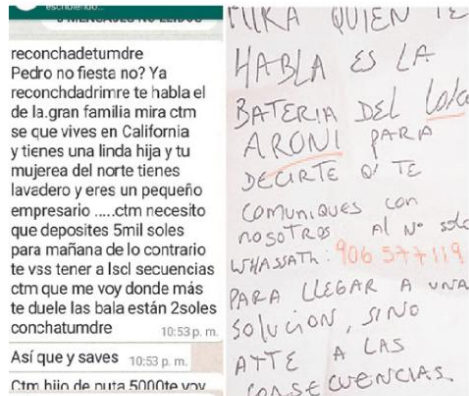 escribiendo...
MENSAJES NO LEIDOS
reconchadetumdre
Pedro no fiesta no? Ya
reconchdadrimre te habla el
de la.gran familia mira ctm
se que vives en California
y tienes una linda hija y tu
mujerea del norte tienes
lavadero y eres un pequeño
empresario .....ctm necesito
que deposites 5mil soles
para mañana de lo contrario
te vss tener a lscl secuencias
ctm que me voy donde más
te duele las bala están 2soles
conchatumdre
10:53 p. m.
Así que y saves 10:53 p. m.
Ctm hijo de puta 5000te voy
MIRA QUIEN TE
HABLA ES LA
BATERIA DEL Loko
ARONI PARA
DECIRTE Q' TE
COMUNIQUES con
nosotros Al Nº solo
WHASSATH: 906 577119
PARA LLEGAR A UNA
SOLUCION, SINO
ATTE A LAS
CONSECUENCIAS